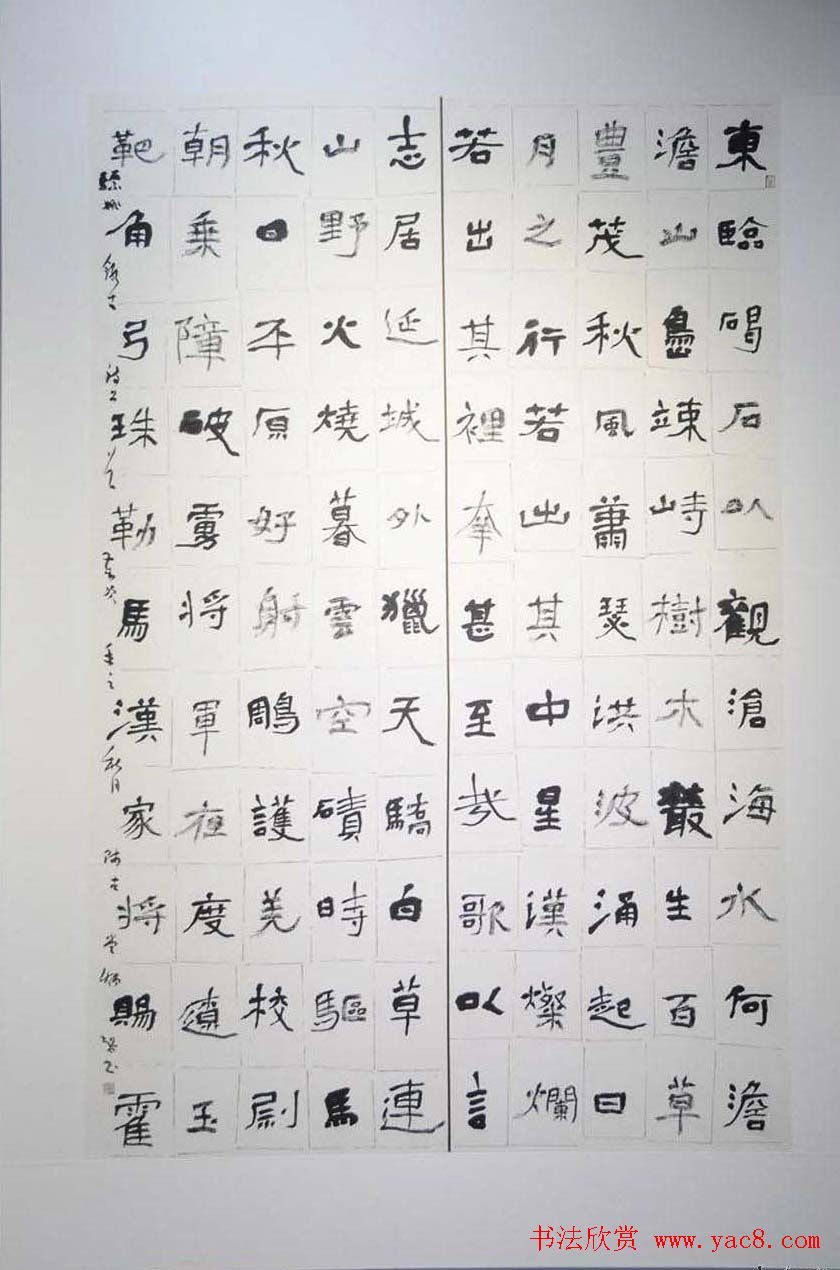 東臨碣石以觀滄海水何澹
澹山島竦峙樹木叢生百草
豊茂秋風蕭瑟洪波涌起日
月之行若出其中星漢燦爛
若出其裡幸甚至哉歌以言
志居延城外獵天驕白草連
山野火燒暮雲空磧時驅馬
秋日平原好射鵰護羌校尉
朝乗障破虜將軍夜度遼玉
靶角弓珠勒馬漢家將賜霍
書法欣赏 www.yac8.com